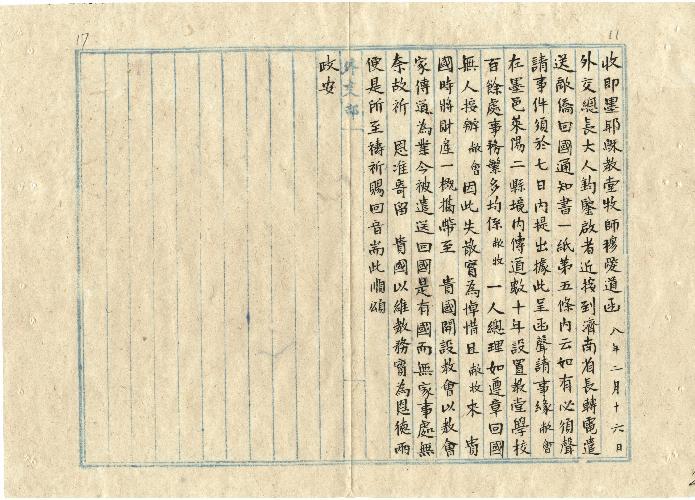 17
11
收即墨耶穌教堂牧師穆陵道函 八年二月十六日
外交總長大人鈞鑒啟者近接到濟南省長轉電遣
送敵僑回國通知書一紙第五條內云如有必須聲
請事件須於七日內提出據此呈函聲請事緣敝會
在墨邑萊陽二縣境內傳道數十年設置教堂學校
百餘處事務繁多均係敝牧一人總理如遵章回國
無人接辦敝會因此失散實為悼惜且敝牧來 貴
國時將財產一概攜帶至 貴國開設教會以教會
家傳道為業今被遣送回國是有國而無家事處無
奈故祈 恩准寄留 貴國以維教務實為恩德兩
便是所至禱祈賜回音耑此順頌
政安
外交部